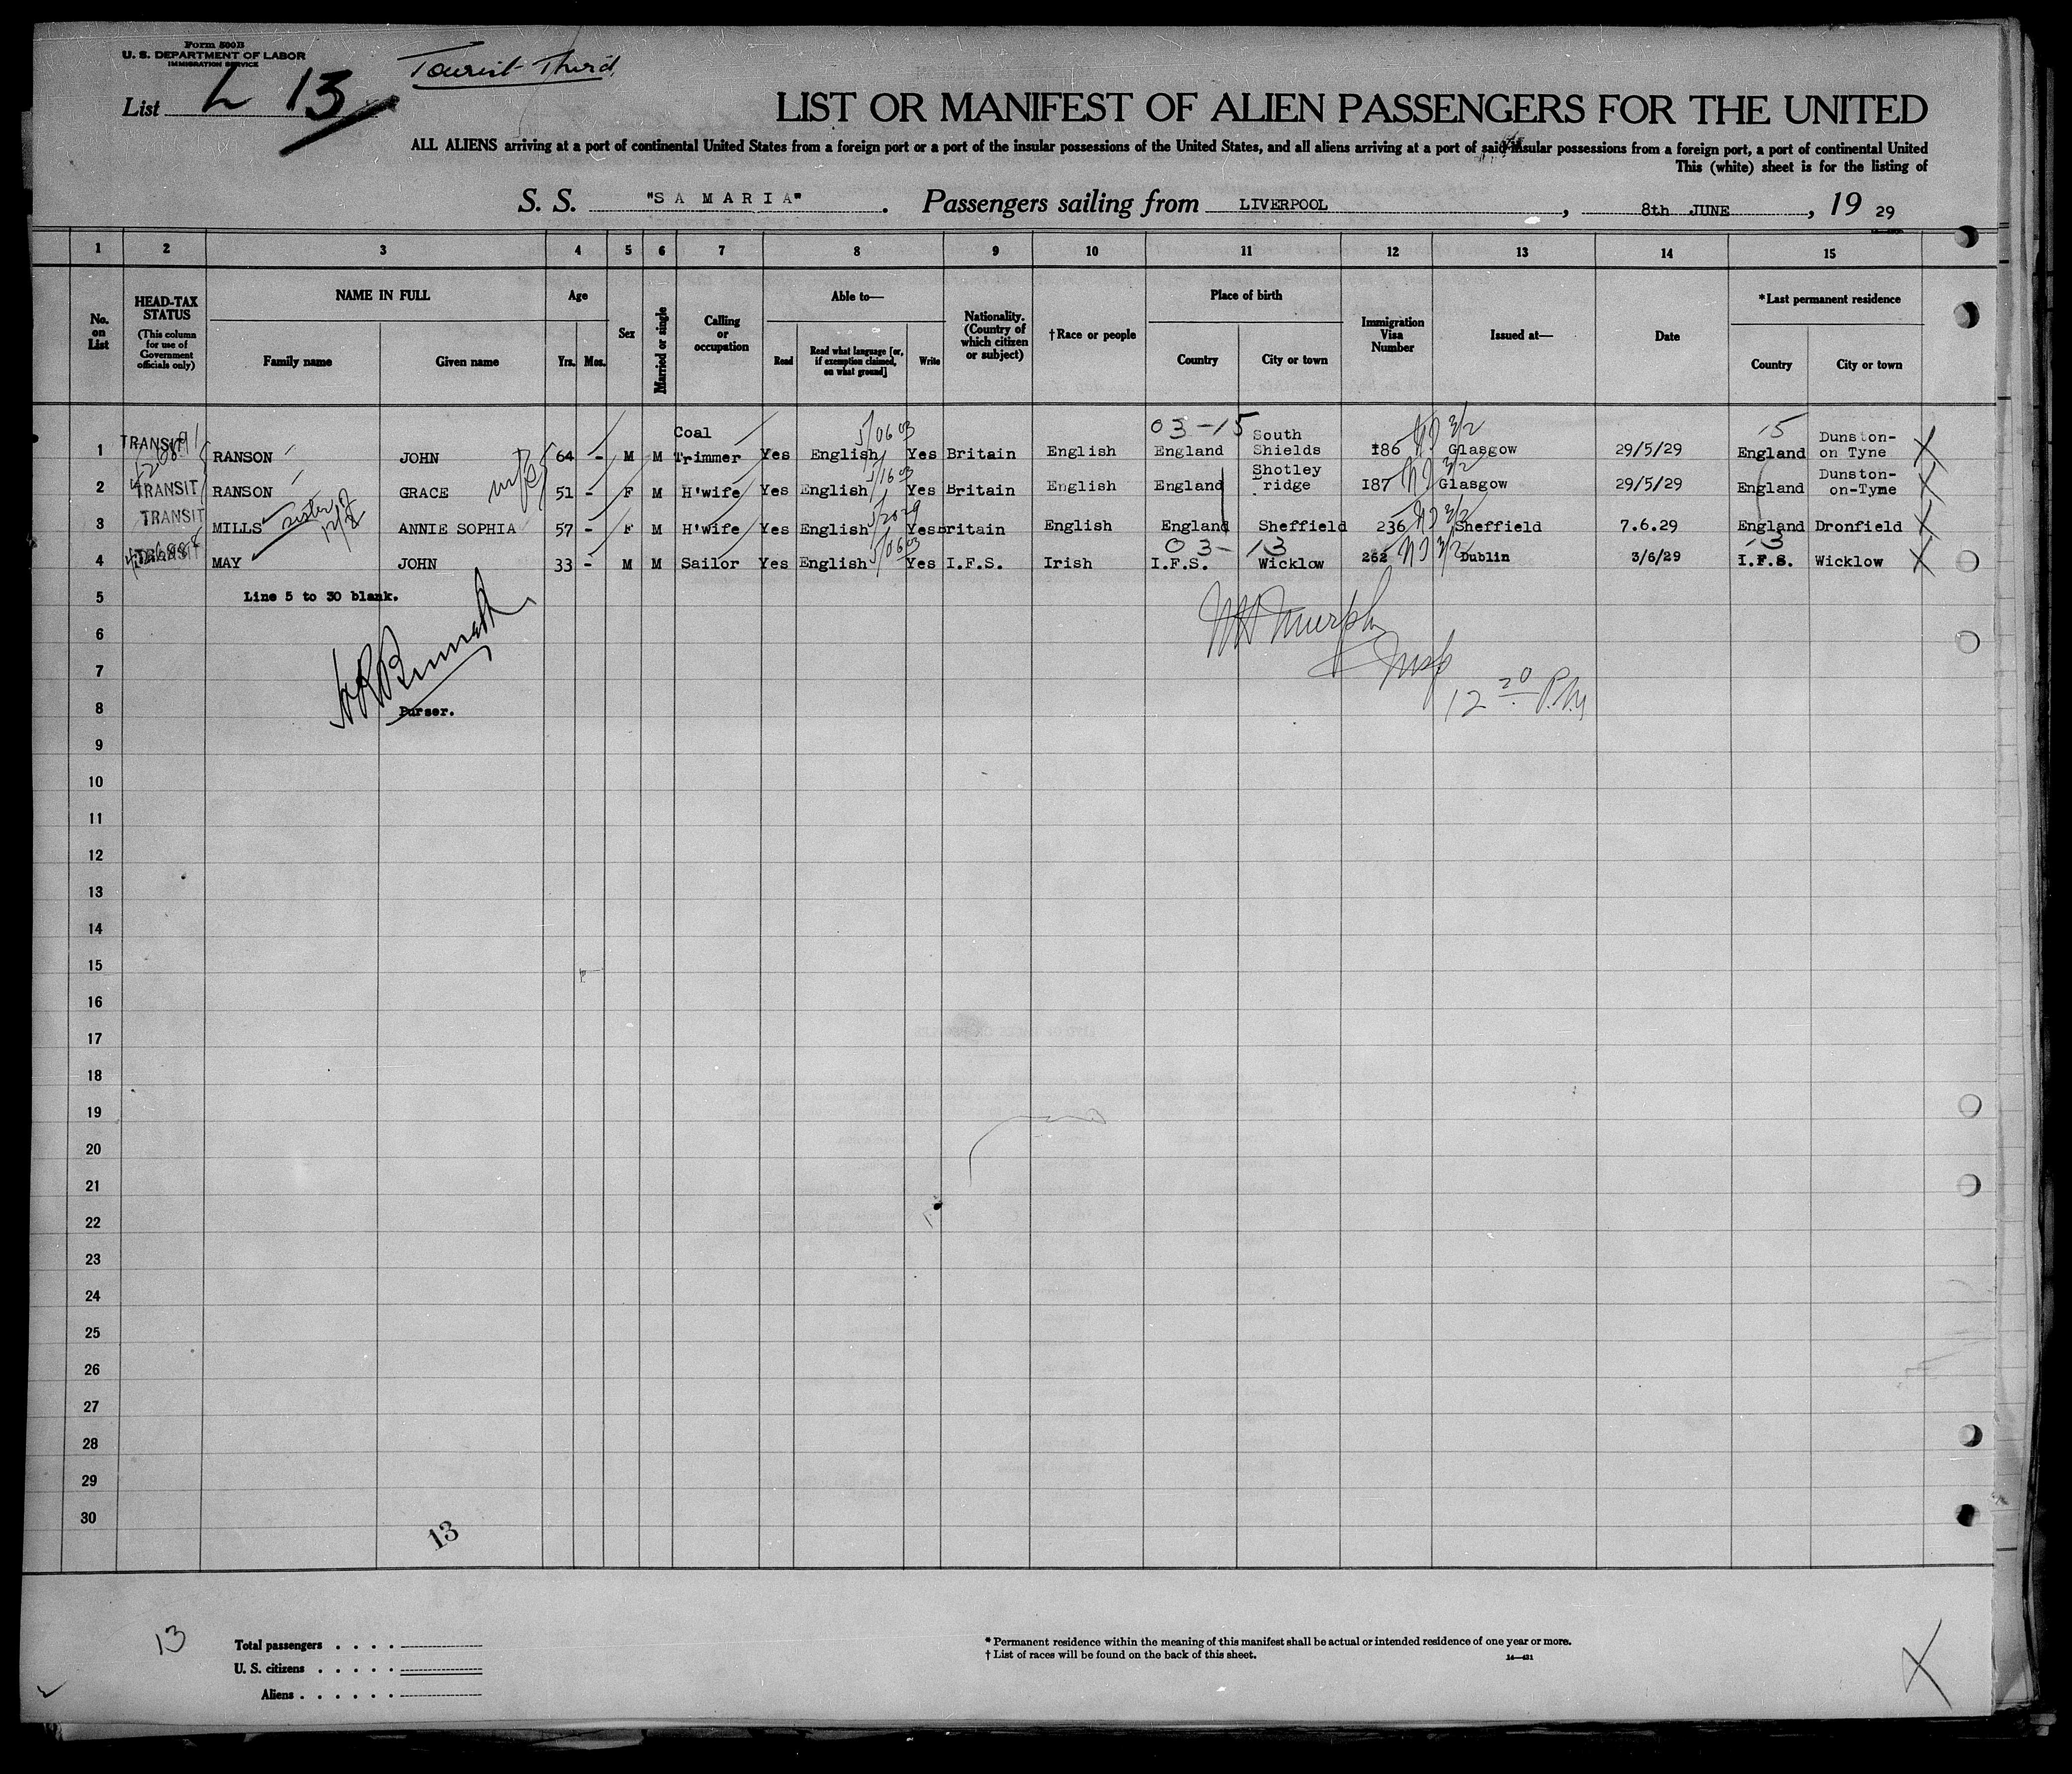 Form 500B
U. S. DEPARTMENT OF LABOR
IMMIGRATION SERVICE
List L 13
Tourist Third
LIST OR MANIFEST OF ALIEN PASSENGERS FOR THE UNITED
ALL ALIENS arriving at a port of continental United States from a foreign port or a port of the insular possessions of the United States, and all aliens arriving at a port of said insular possessions from a foreign port, a port of continental United
This (white) sheet is for the listing of
S. S. "SAMARIA". Passengers sailing from LIVERPOOL, 8th JUNE, 19 29
1 2 3 4 5 6 7 8 9 10 11 12 13 14 15
No. on List
HEAD-TAX STATUS
(This column for use of Government officials only)
NAME IN FULL
Family name Given name
Age
Yrs. Mos.
Sex
Married or single
Calling or occupation
Able to—
Read Read what language [or, if exemption claimed, on what ground] Write
Nationality. (Country of which citizen or subject)
†Race or people
Place of birth
Country City or town
Immigration Visa Number
Issued at—
Date
*Last permanent residence
Country City or town
03-15 15
1 TRANSIT RANSON JOHN 64 - M M Coal Trimmer Yes English Yes Britain English England South Shields 186 Glasgow 29/5/29 England Dunston-on Tyne X
2 TRANSIT RANSON GRACE wife 51 - F M H'wife Yes English Yes Britain English England Shotley ridge 187 Glasgow 29/5/29 England Dunston-on-Tyme X
3 TRANSIT MILLS sister ANNIE SOPHIA 57 - F M H'wife Yes English Yes britain English England Sheffield 236 Sheffield 7.6.29 England Dronfield X
03-13 13
4 TRANSIT MAY JOHN 33 - M M Sailor Yes English Yes I.F.S. Irish I.F.S. Wicklow 262 Dublin 3/6/29 I.F.S. Wicklow X
5 Line 5 to 30 blank.
6
7
8 Purser.
Murphy
Insp
12 20 P.M
9
10
11
12
13
14
15
16
17
18
19
20
21
22
23
24
25
26
27
28
29
30
13
13
Total passengers . . . .
U. S. citizens . . . . .
Aliens . . . . . .
* Permanent residence within the meaning of this manifest shall be actual or intended residence of one year or more.
† List of races will be found on the back of this sheet.
14—421
X